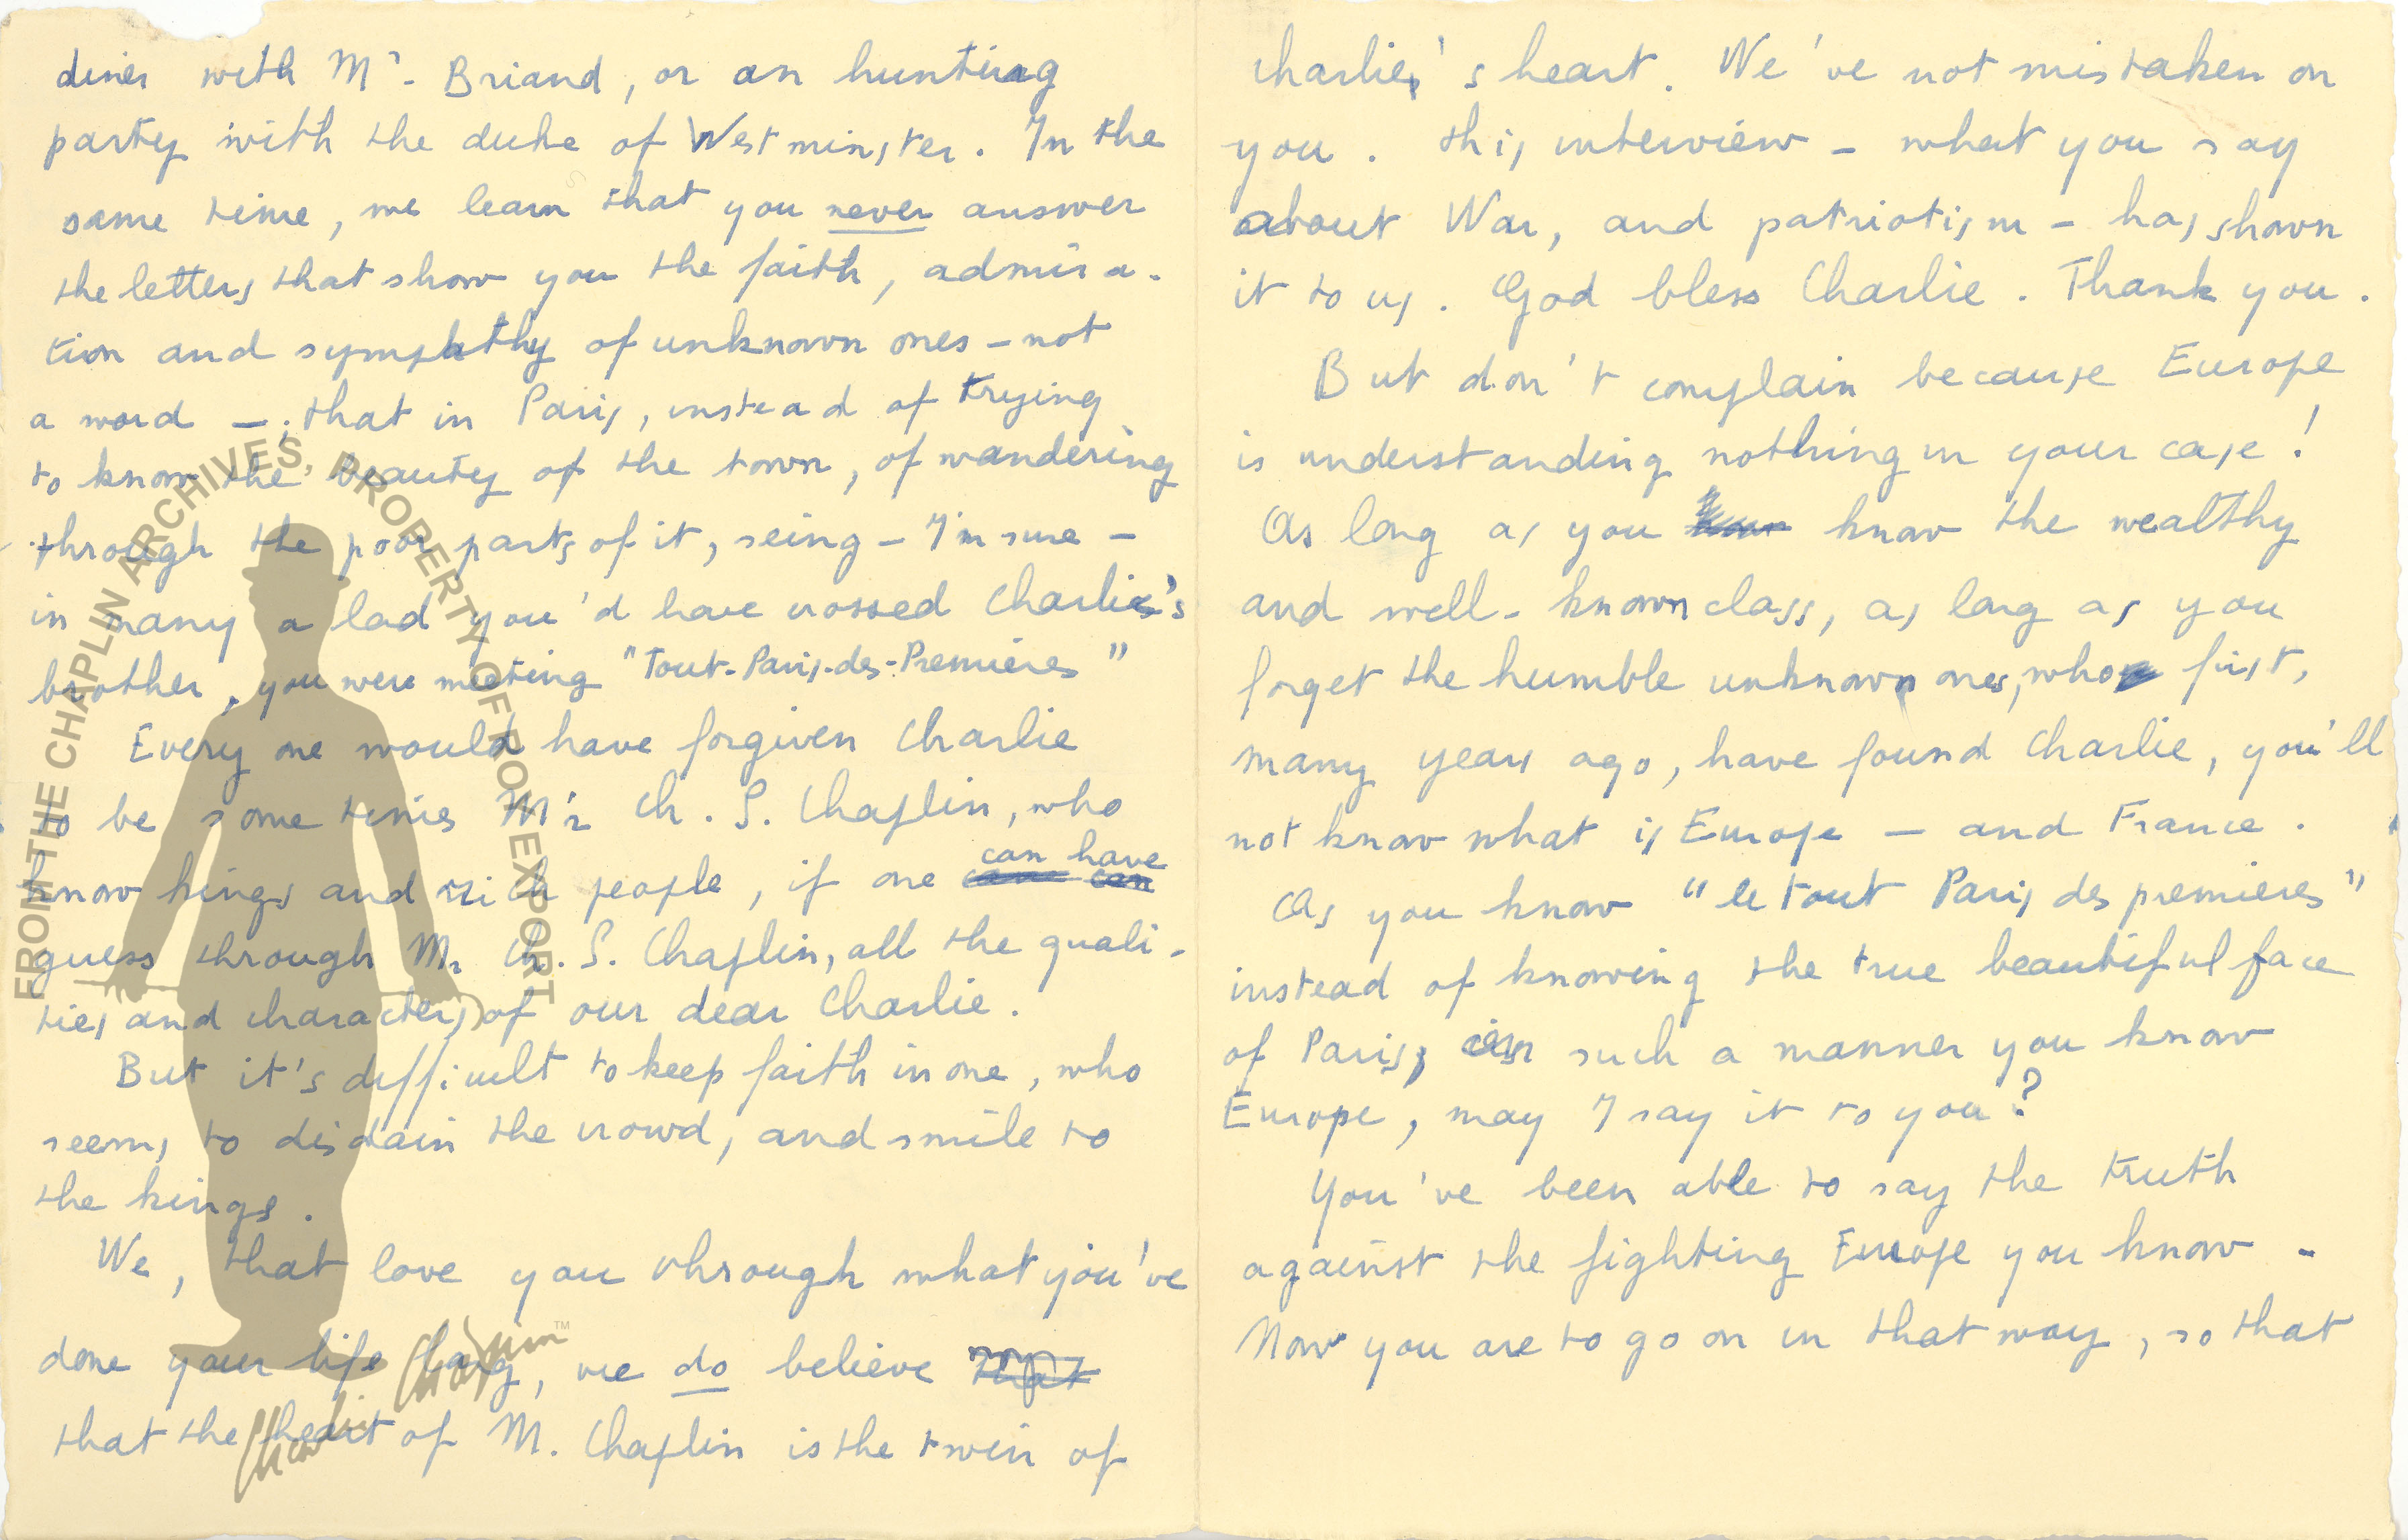 diner with Mr. Briand, or an hunting
party with the duke of Westminster. In the
same time, we learn that you never answer
the letters that show you the faith, admira-
tion and sympathy of unknown ones - not
a word - ; that in Paris, instead of trying
to know the beauty of the town, of wandering
through the poor parts of it, seing - I'm sure -
in many a lad you'd have crossed Charlie's
brother, you were meeting "Tout-Paris-des-Premières"
Every one would have forgiven Charlie
to be some times Mr Ch. S. Chaplin, who
know kings and rich people, if one can have
guess through Mr Ch. S. Chaplin, all the quali-
ties and characters of our dear Charlie.
But it's difficult to keep faith in one, who
seems to disdain the crowd, and smile to
the kings.
We, that love you through what you've
done your life long, we do believe
that the heart of M. Chaplin is the twin of
Charlie's heart. We've not mistaken on
you. This interview - what you say
about War, and patriotism - has shown
it to us. God bless Charlie. Thank you.
But don't complain because Europe
is understanding nothing in your case!
As long as you know the wealthy
and well-known class, as long as you
forget the humble unknown ones, who first,
many years ago, have found Charlie, you'll
not know what is Europe - and France.
As you know "le tout Paris des premieres"
instead of knowing the true beautiful face
of Paris, in such a manner you know
Europe, may I say it to you?
You've been able to say the truth
against the fighting Europe you know -
Now you are to go on in that way, so that
FROM THE CHAPLIN ARCHIVES, PROPERTY OF ROY EXPORT
Charlie Chaplin™